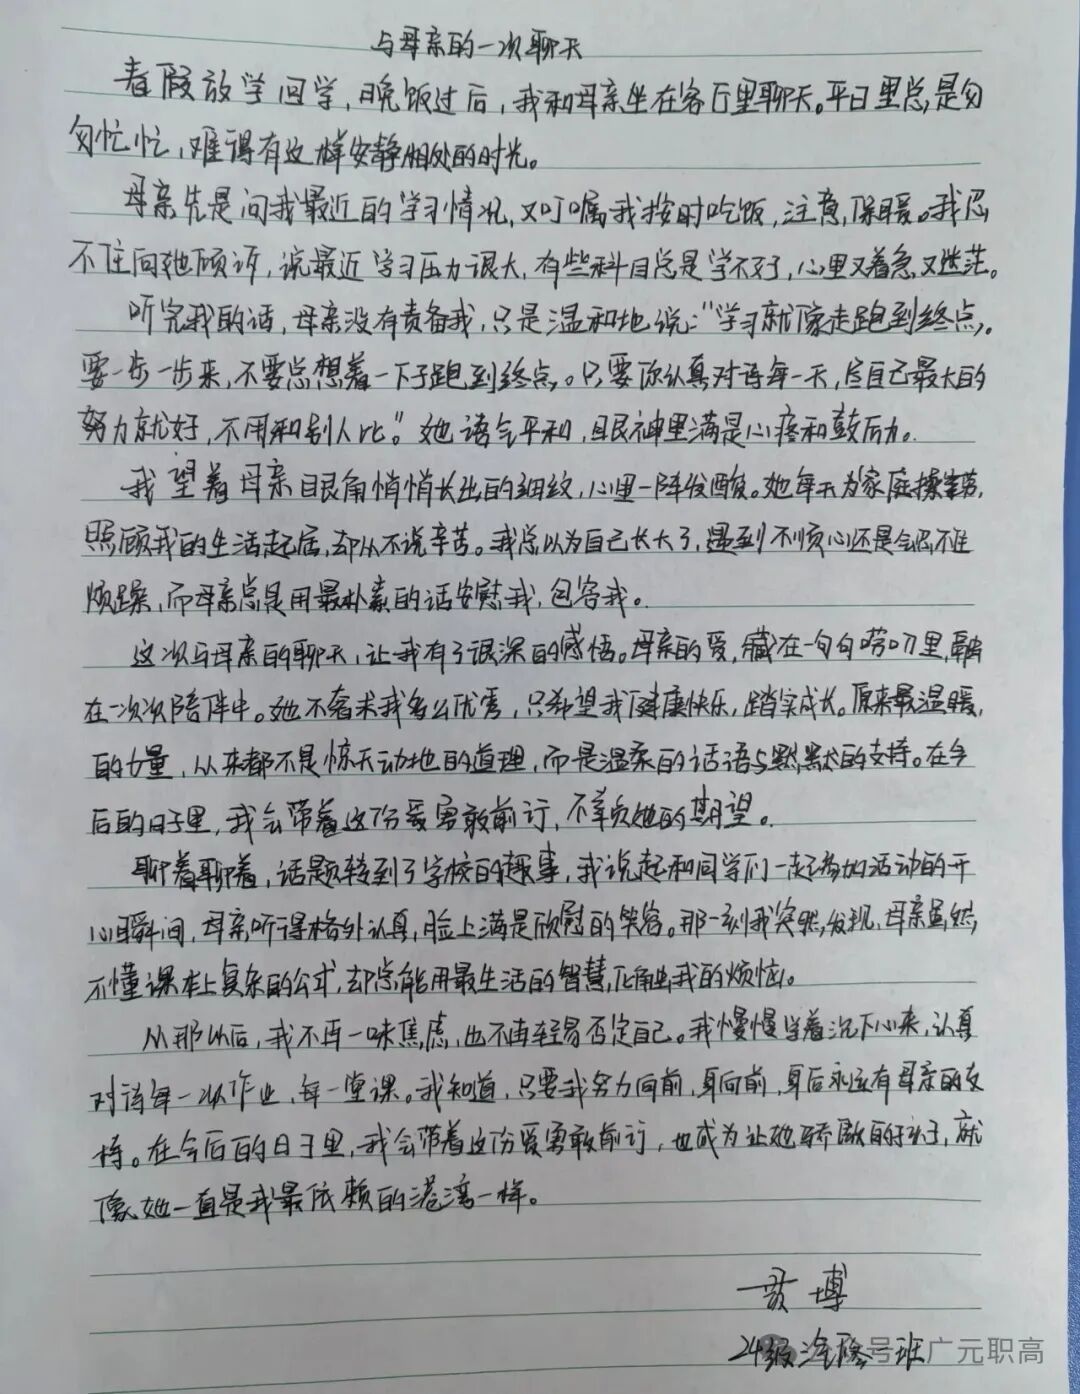 与母亲的一次聊天
春假放学回学，晚饭过后，我和母亲坐在客厅里聊天。平日里总是匆
匆忙忙，难得有这样安静相处的时光。
母亲先是问我最近的学习情况，又叮嘱我按时吃饭，注意保暖。我忍
不住向她倾诉，说最近学习压力很大，有些科目总是学不好，心里又着急又迷茫。
听完我的话，母亲没有责备我，只是温和地说："学习就像走跑到终点，
要一步一步来，不要总想着一下子跑到终点。只要你认真对待每一天，尽自己最大的
努力就好，不用和别人比。"她语气平和，眼神里满是心疼和鼓励。
我望着母亲眼角悄悄长出的细纹，心里一阵发酸。她每天为家庭操劳，
照顾我的生活起居，却从不说辛苦。我总以为自己长大了，遇到不顺心还是会忍不住
烦躁，而母亲总是用最朴素的话安慰我，包容我。
这次与母亲的聊天，让我有了很深的感悟。母亲的爱，藏在一句句唠叨里，藏
在一次次陪伴中。她不奢求我多么优秀，只希望我健康快乐，踏实成长。原来最温暖
的力量，从来都不是惊天动地的道理，而是温柔的话语与默默的支持。在今
后的日子里，我会带着这份爱勇敢前行，不辜负她的期望。
聊着聊着，话题转到了学校的趣事，我说起和同学们一起参加活动的开
心瞬间，母亲听得格外认真，脸上满是欣慰的笑容。那一刻我突然发现，母亲虽然
不懂课本上复杂的公式，却总能用最生活的智慧，化解我的烦恼。
从那以后，我不再一味焦虑，也不再轻易否定自己。我慢慢学着沉下心来，认真
对待每一次作业，每一堂课。我知道，只要我努力向前，身向前，身后永远有母亲的支
持。在今后的日子里，我会带着这份爱勇敢前行，也成为让她骄傲的孩子，就
像她一直是我最依赖的港湾一样。
博
24级汽修一班
号 广元职高